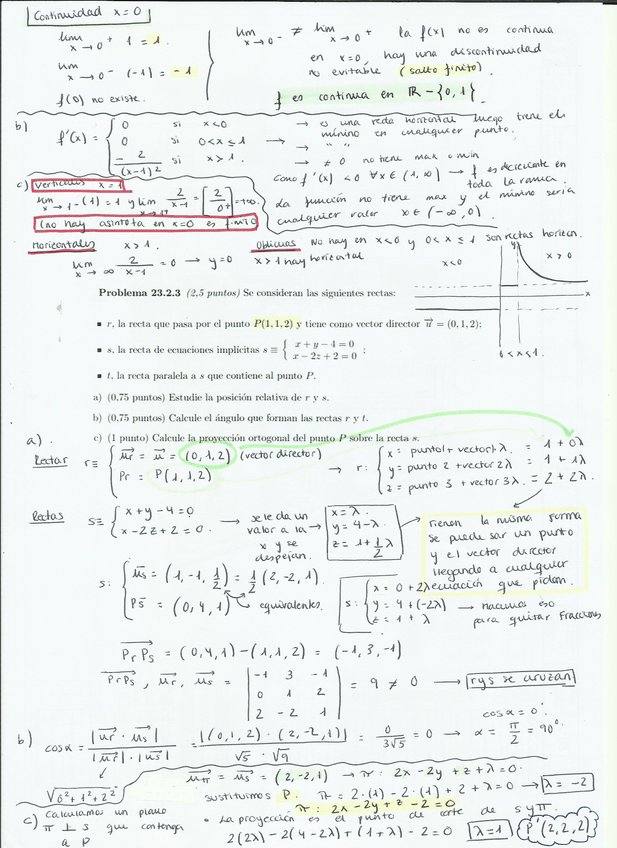 Continuidad x=0
lim x→0⁺ 1 = 1.
lim x→0⁻ (-1) = -1
f(0) no existe.
lim x→0⁻ ≠ lim x→0⁺ la f(x) no es continua
en x=0, hay una discontinuidad
no evitable (salto finito)
f es continua en ℝ - {0,1}.
b) f'(x) = { 0 si x<0 → es una recta horizontal luego tiene el
mínimo en cualquier punto.
0 si 0<x≤1 → " "
-2/(x-1)² si x>1. → ≠ 0 no tiene max o min
Como f'(x) < 0 ∀x∈(1,∞) → f es decreciente en
toda la rama.
la función no tiene max y el mínimo sería
cualquier valor x∈(-∞,0).
c) Verticales x=1
lim x→1⁻ (-1) = 1 y lim x→1⁺ 2/(x-1) = [2/0⁺] = +∞.
(no hay asíntota en x=0 es finito
Horizontales x>1.
lim x→∞ 2/(x-1) = 0 → y=0
Oblicuas No hay en x<0 y 0<x≤1 son rectas horizon.
x>1 hay horizontal
x<0
y
x>0
x
0<x<1.
Problema 23.2.3 (2,5 puntos) Se consideran las siguientes rectas:
▪ r, la recta que pasa por el punto P(1,1,2) y tiene como vector director u⃗ = (0,1,2);
▪ s, la recta de ecuaciones implícitas s ≡ { x+y−4=0
x−2z+2=0 ;
▪ t, la recta paralela a s que contiene al punto P.
a) (0,75 puntos) Estudie la posición relativa de r y s.
b) (0,75 puntos) Calcule el ángulo que forman las rectas r y t.
c) (1 punto) Calcule la proyección ortogonal del punto P sobre la recta s.
a).
Recta r r≡ { u⃗r = u⃗ = (0,1,2) (vector director)
Pr = P(1,1,2)
→ r: { x = punto1 + vector1·λ = 1+0λ
y = punto 2 + vector 2λ = 1+1λ
z = punto 3 + vector 3λ = 2+2λ.
Recta s s≡ { x+y-4=0
x-2z+2=0.
→ se le da un
valor a la
x y se
despejan.
→ x=λ
y=4-λ
z=1+1/2 λ
Tienen la misma forma
se puede sar un punto
y el vector director
llegando a cualquier
ecuación que pidan.
s: { u⃗s = (1,-1,1/2) = 1/2 (2,-2,1).
Ps = (0,4,1) equivalentes.
s: { x = 0+2λ
y = 4+(-2λ) → hacemos eso
z = 1+λ para quitar fracciones
PrPs = (0,4,1)-(1,1,2) = (-1,3,-1)
PrPs, ur, us = | -1 3 -1 |
| 0 1 2 | = 9 ≠ 0 → r y s se cruzan
| 2 -2 1 |
b) cosα = |ur · us| / |ur|·|us| = |(0,1,2)·(2,-2,1)| / √5·√9 = 0/3√5 = 0 → α = π/2 = 90°.
cosα = 0°.
√0²+1²+2²
c) Calculamos un plano
π ⊥ s que contenga
a P
uπ = us = (2,-2,1) → π: 2x-2y+z+λ=0.
sustituimos P. π = 2·(1)-2·(1)+2+λ=0 → λ=-2
π: 2x-2y+z-2=0
• La proyección es el punto de corte de s y π.
2(2λ)-2(4-2λ)+(1+λ)-2=0 λ=1 P'(2,2,2)